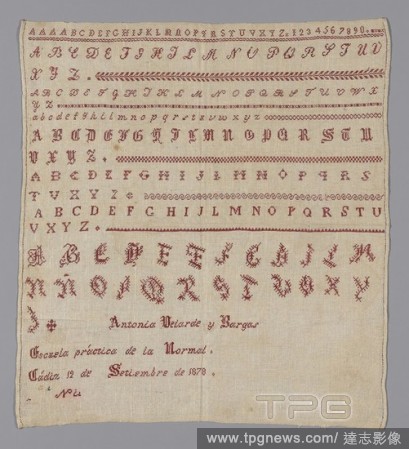 A A A A B C D E F G H I J K L M N O P Q R S T U V X Y Z . 1 2 3 4 5 6 7 8 9 0 .
A B C D E F G H I J L M N O P Q R S T U V
X Y Z .
A B C D E F G H I J K L M N O P Q R S T U V W X
Y Z
a b c d e f g h i j l m n o p q r s t u v x y z
A B C D E F G H I J L M N O P Q R S T U
V X Y Z .
A B C D E F G H I J L M N O P Q R S
T U V X Y Z
A B C D E F G H I J L M N O P Q R S T U
V X Y Z .
A B C D E F G H I J L M
N Ñ O P Q R S T U V X Y
Z
Antonia Velarde y Vargas
Escuela práctica de la Normal .
Cádiz 12 de Setiembre de 1878 .
TPG
www.tpgnews.com/達志影像